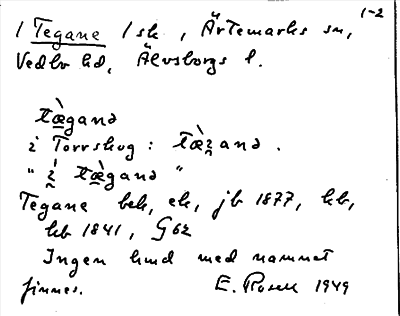 1-2
/ Tegane / sk , Ärtemarks sn,
Vedbo hd, Älvsborgs l.
tæ̀ganə
i Torrskog : tæ̀ʒanə .
" i tæ̀ganə "
Tegane bek, ek, jb 1877, kb,
hb 1841, G 62
Ingen känd med namnet
finnes. E. Rosell 1949